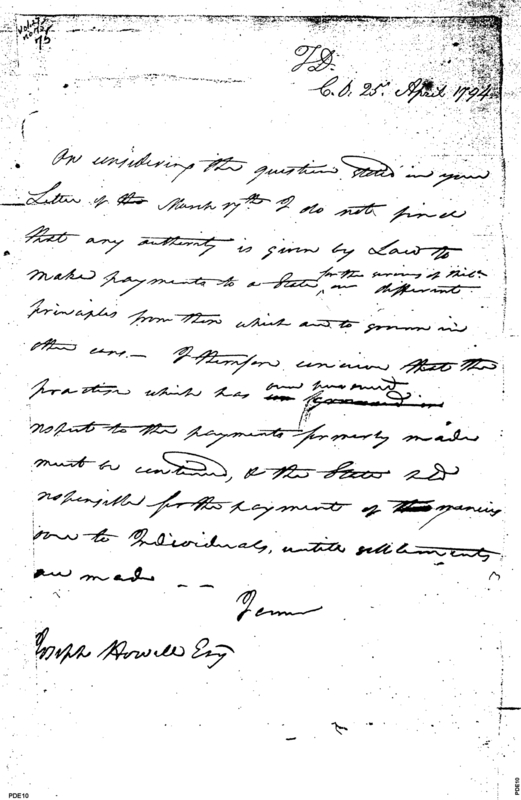 T.D.
C.O. 25. April 1794.
On considering the question stated in your
Letter of the March 17th I do not find
that any authority is given by Law to
for the services of
make payments to a State, on different
principles from those which are to govern in
other cases. — I therefore conceive that the
practise which has
respect to the payments formerly made
must be continued, & the State held
responsible for the payment of the monies
due to Individuals, untill settlements
are made — —
Joseph Howell Esq
PDE10
PDE10